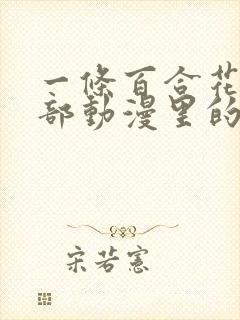 一條百合花
部動漫里的
宋若憲